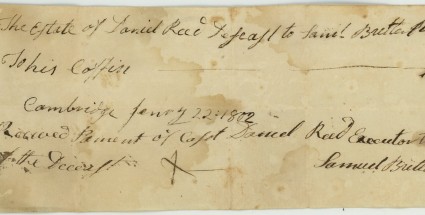 The Estate of Daniel Reed Deceast to Saml Butler
To his Coffin
Cambridge Janry 22: 1802
Received Pament of Capt Daniel Reed Executor
to the Deceast
Samuel Butler